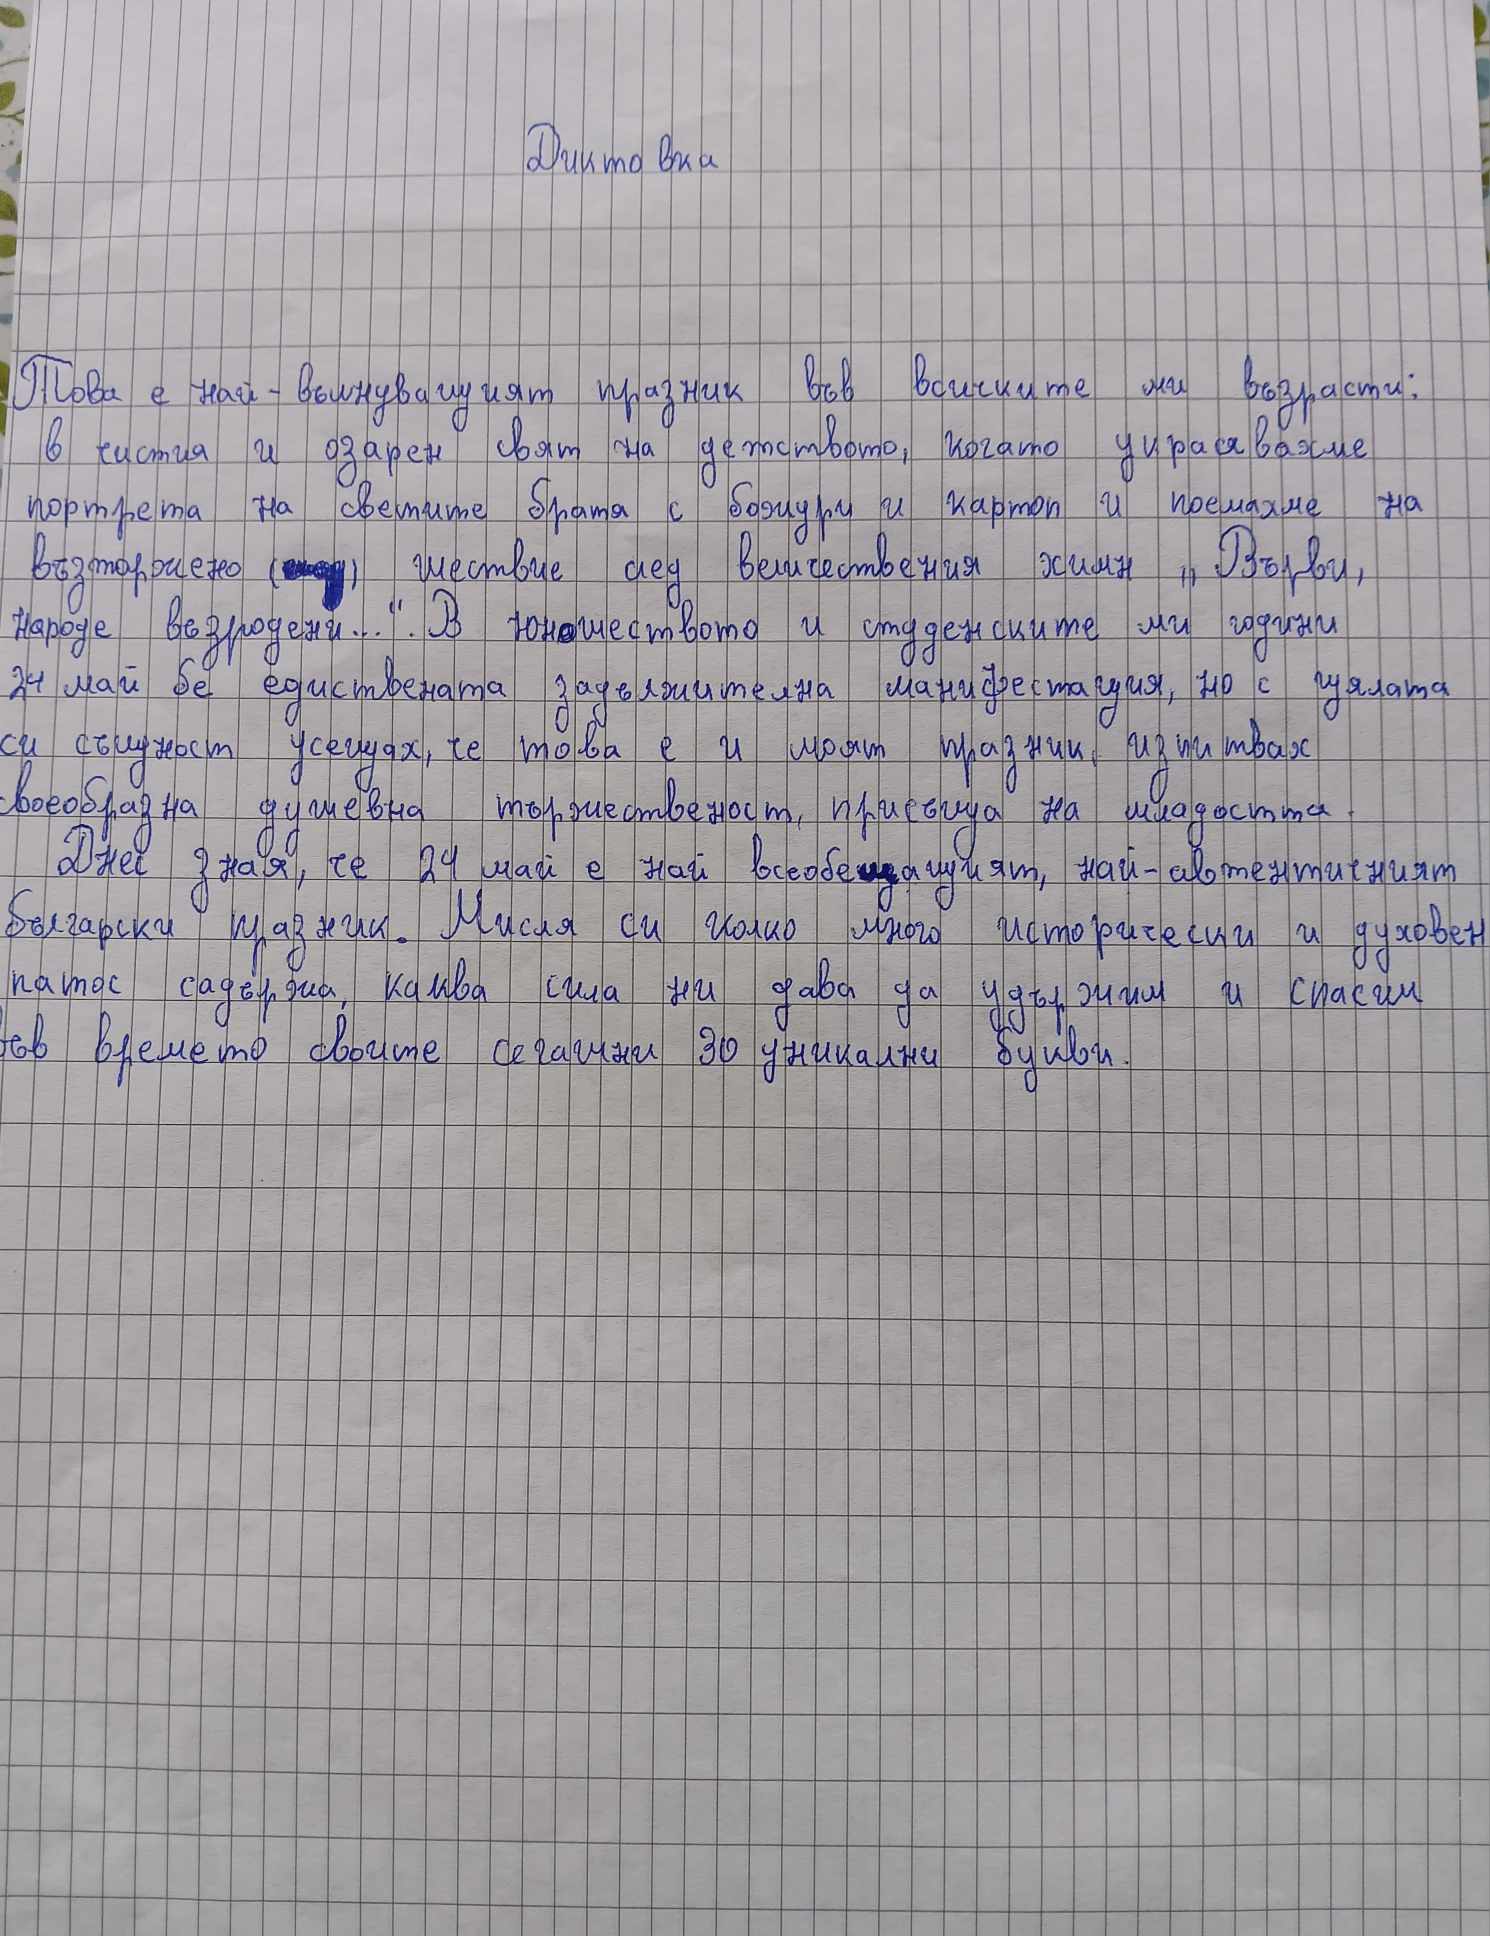 Диктовка
Това е най-вълнуващият празник във всичките ми възрасти:
в чистия и озарен свят на детството, когато украсявахме
портрета на светите братя с божури и картоп и поемахме на
възторжено шествие след величествения химн „Върви,
народе възродени...". В юношеството и студенските ми години
24 май бе едиствената задължителна манифестация, но с цялата
си същност усещах, че това е и моят празник, изпитвах
своеобразна душевна тържественост, присъща на младостта.
Днес зная, че 24 май е най всеобещаващият, най-автентичният
български празник. Мисля си колко много исторически и духовен
патос садържа, каква сила ни дава да удържим и спасим
във времето своите сегашни 30 уникални букви.